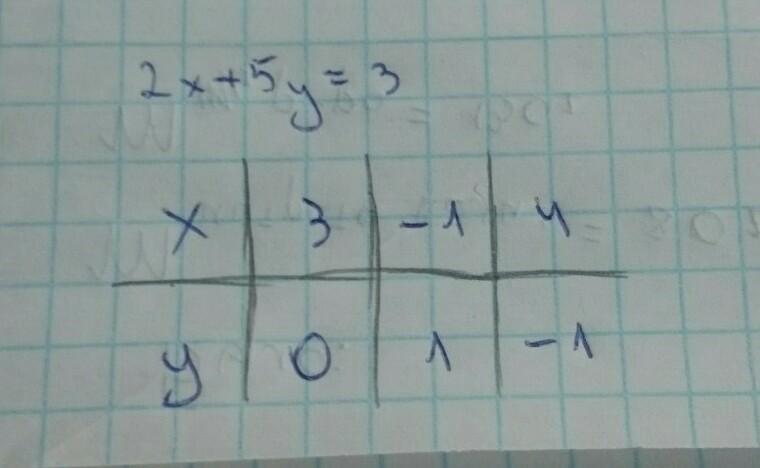 2x+5y=3
x 3 -1 4
y 0 1 -1